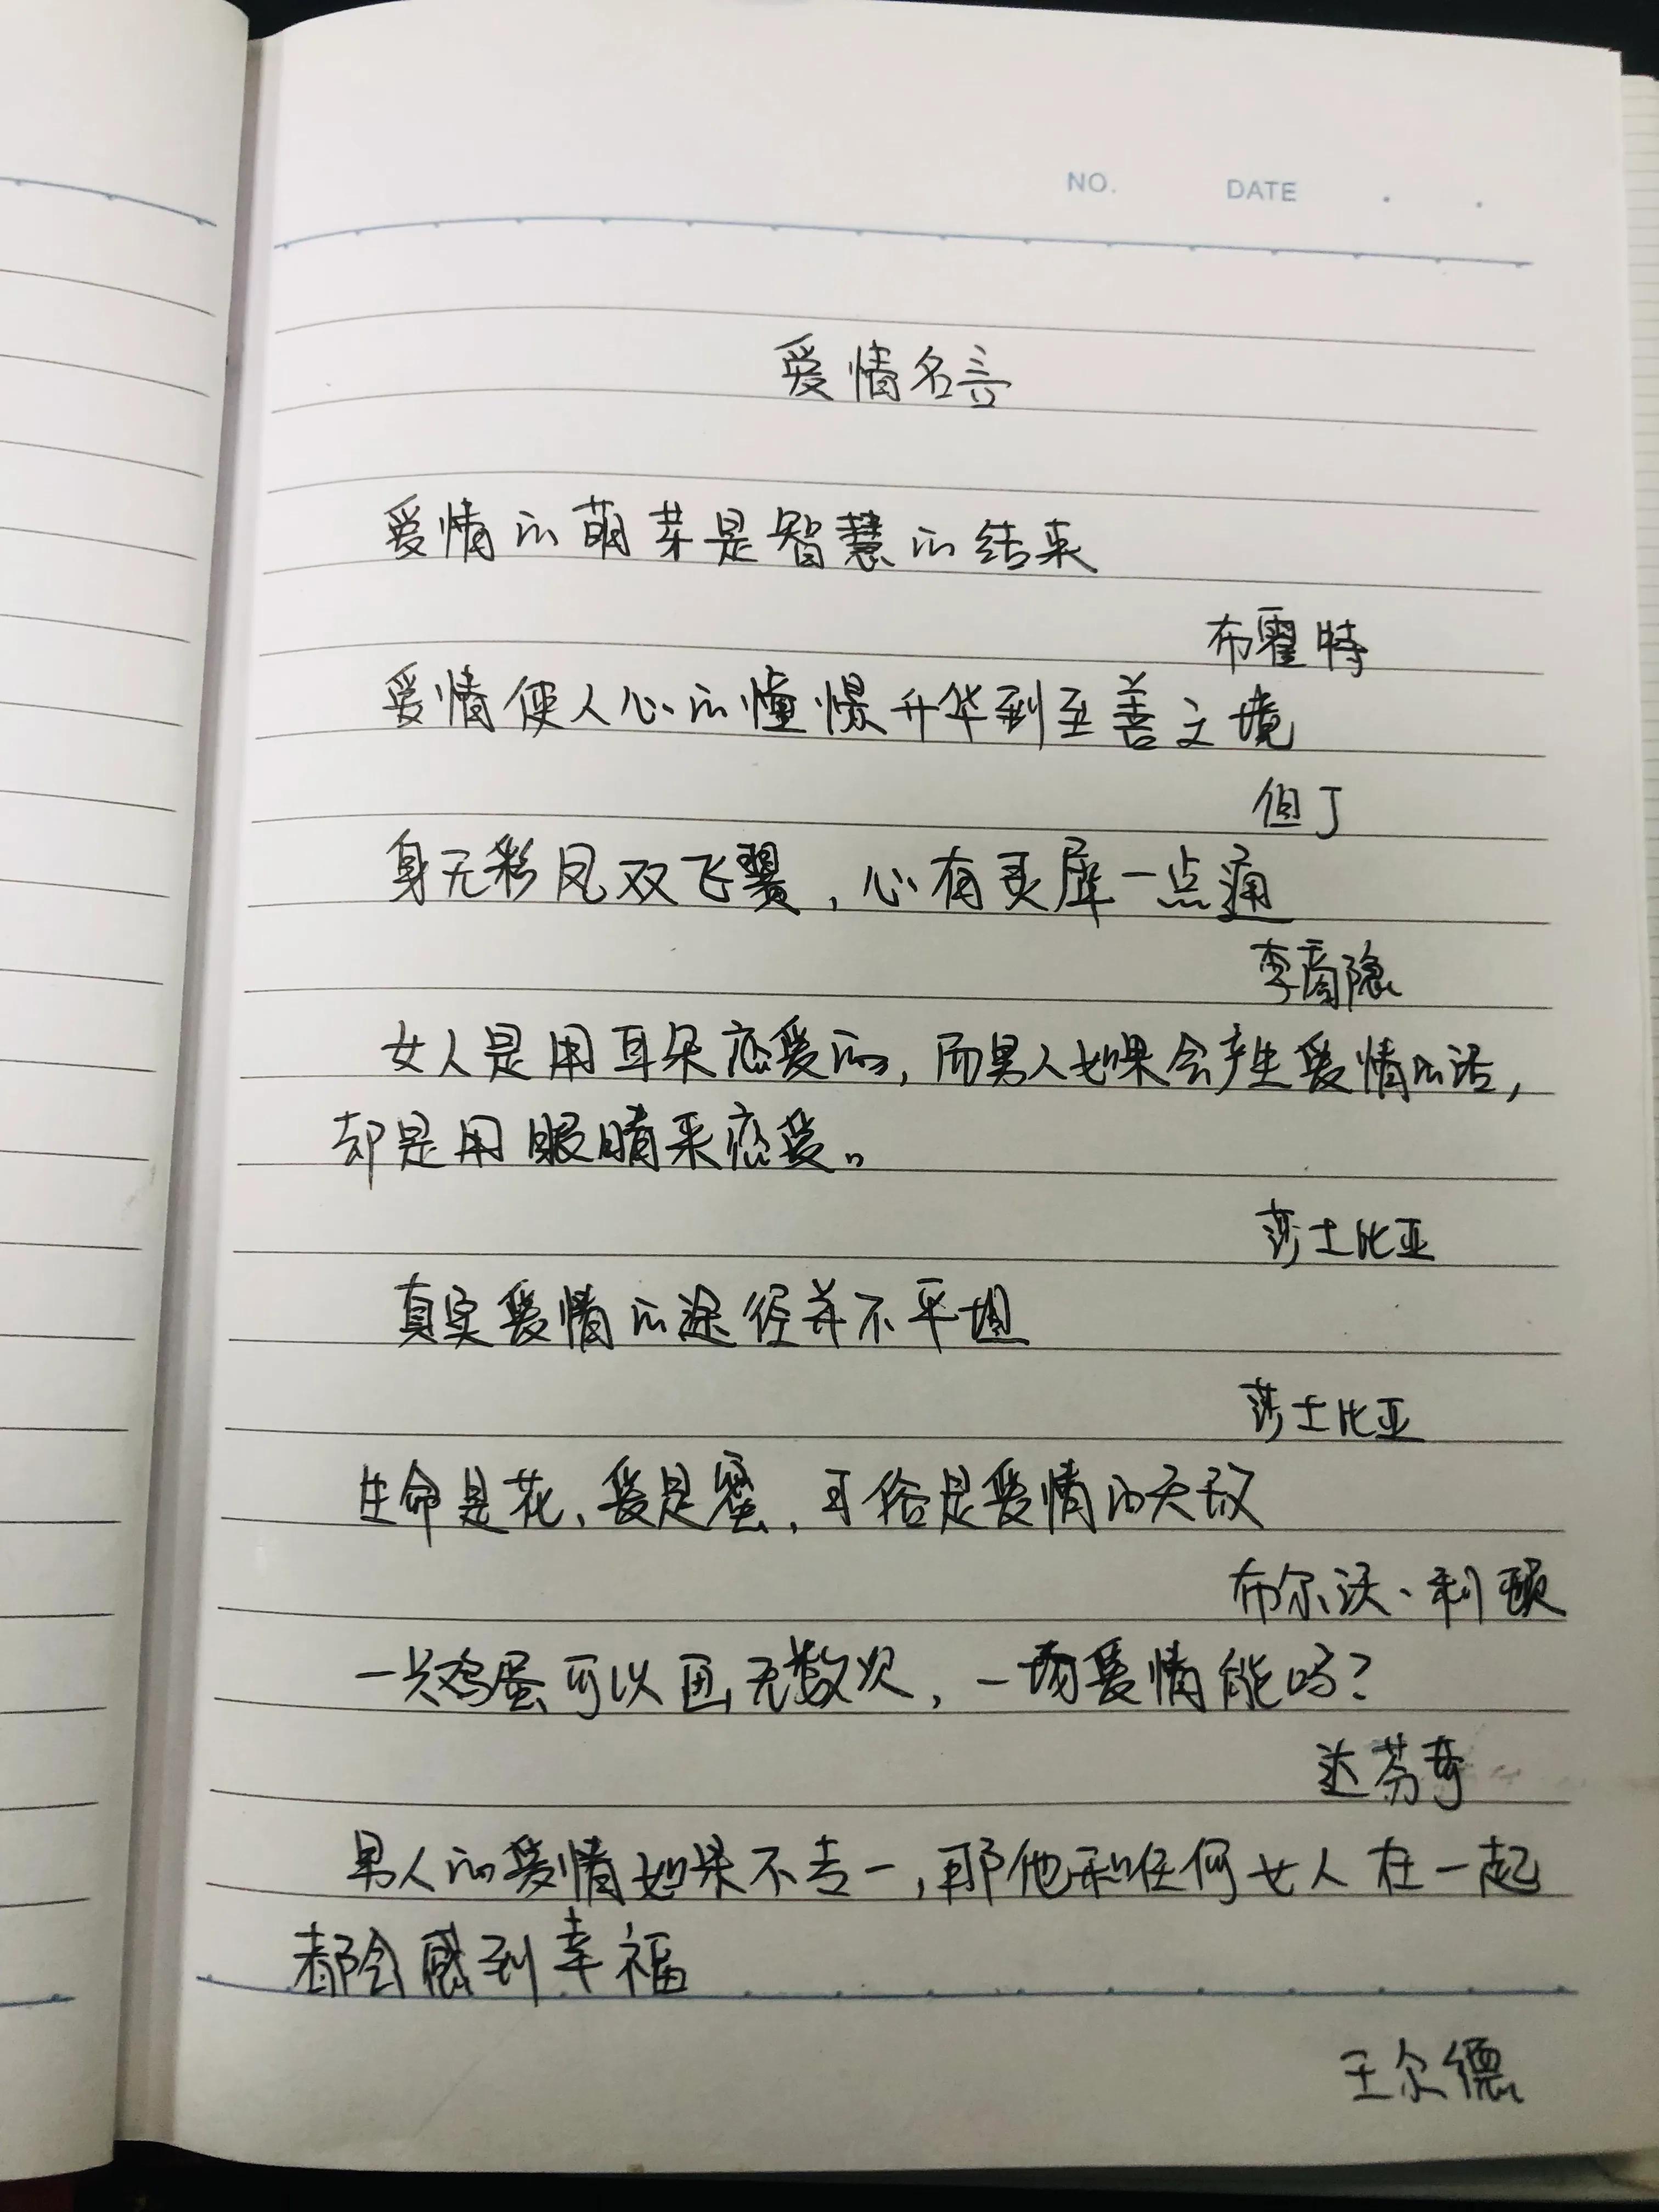 NO. DATE . .
爱情名言
爱情的萌芽是智慧的结束
布霍特
爱情使人心的憧憬升华到至善之境
但丁
身无彩凤双飞翼，心有灵犀一点通
李商隐
女人是用耳朵恋爱的，而男人如果会产生爱情的话，
却是用眼睛来恋爱。
莎士比亚
真实爱情的途径并不平坦
莎士比亚
生命是花，爱是蜜，可俗是爱情的天敌
布尔沃·利顿
一只鸡蛋可以画无数次，一场爱情能吗？
达芬奇
男人的爱情如果不专一，那他和任何女人在一起
都会感到幸福
王尔德